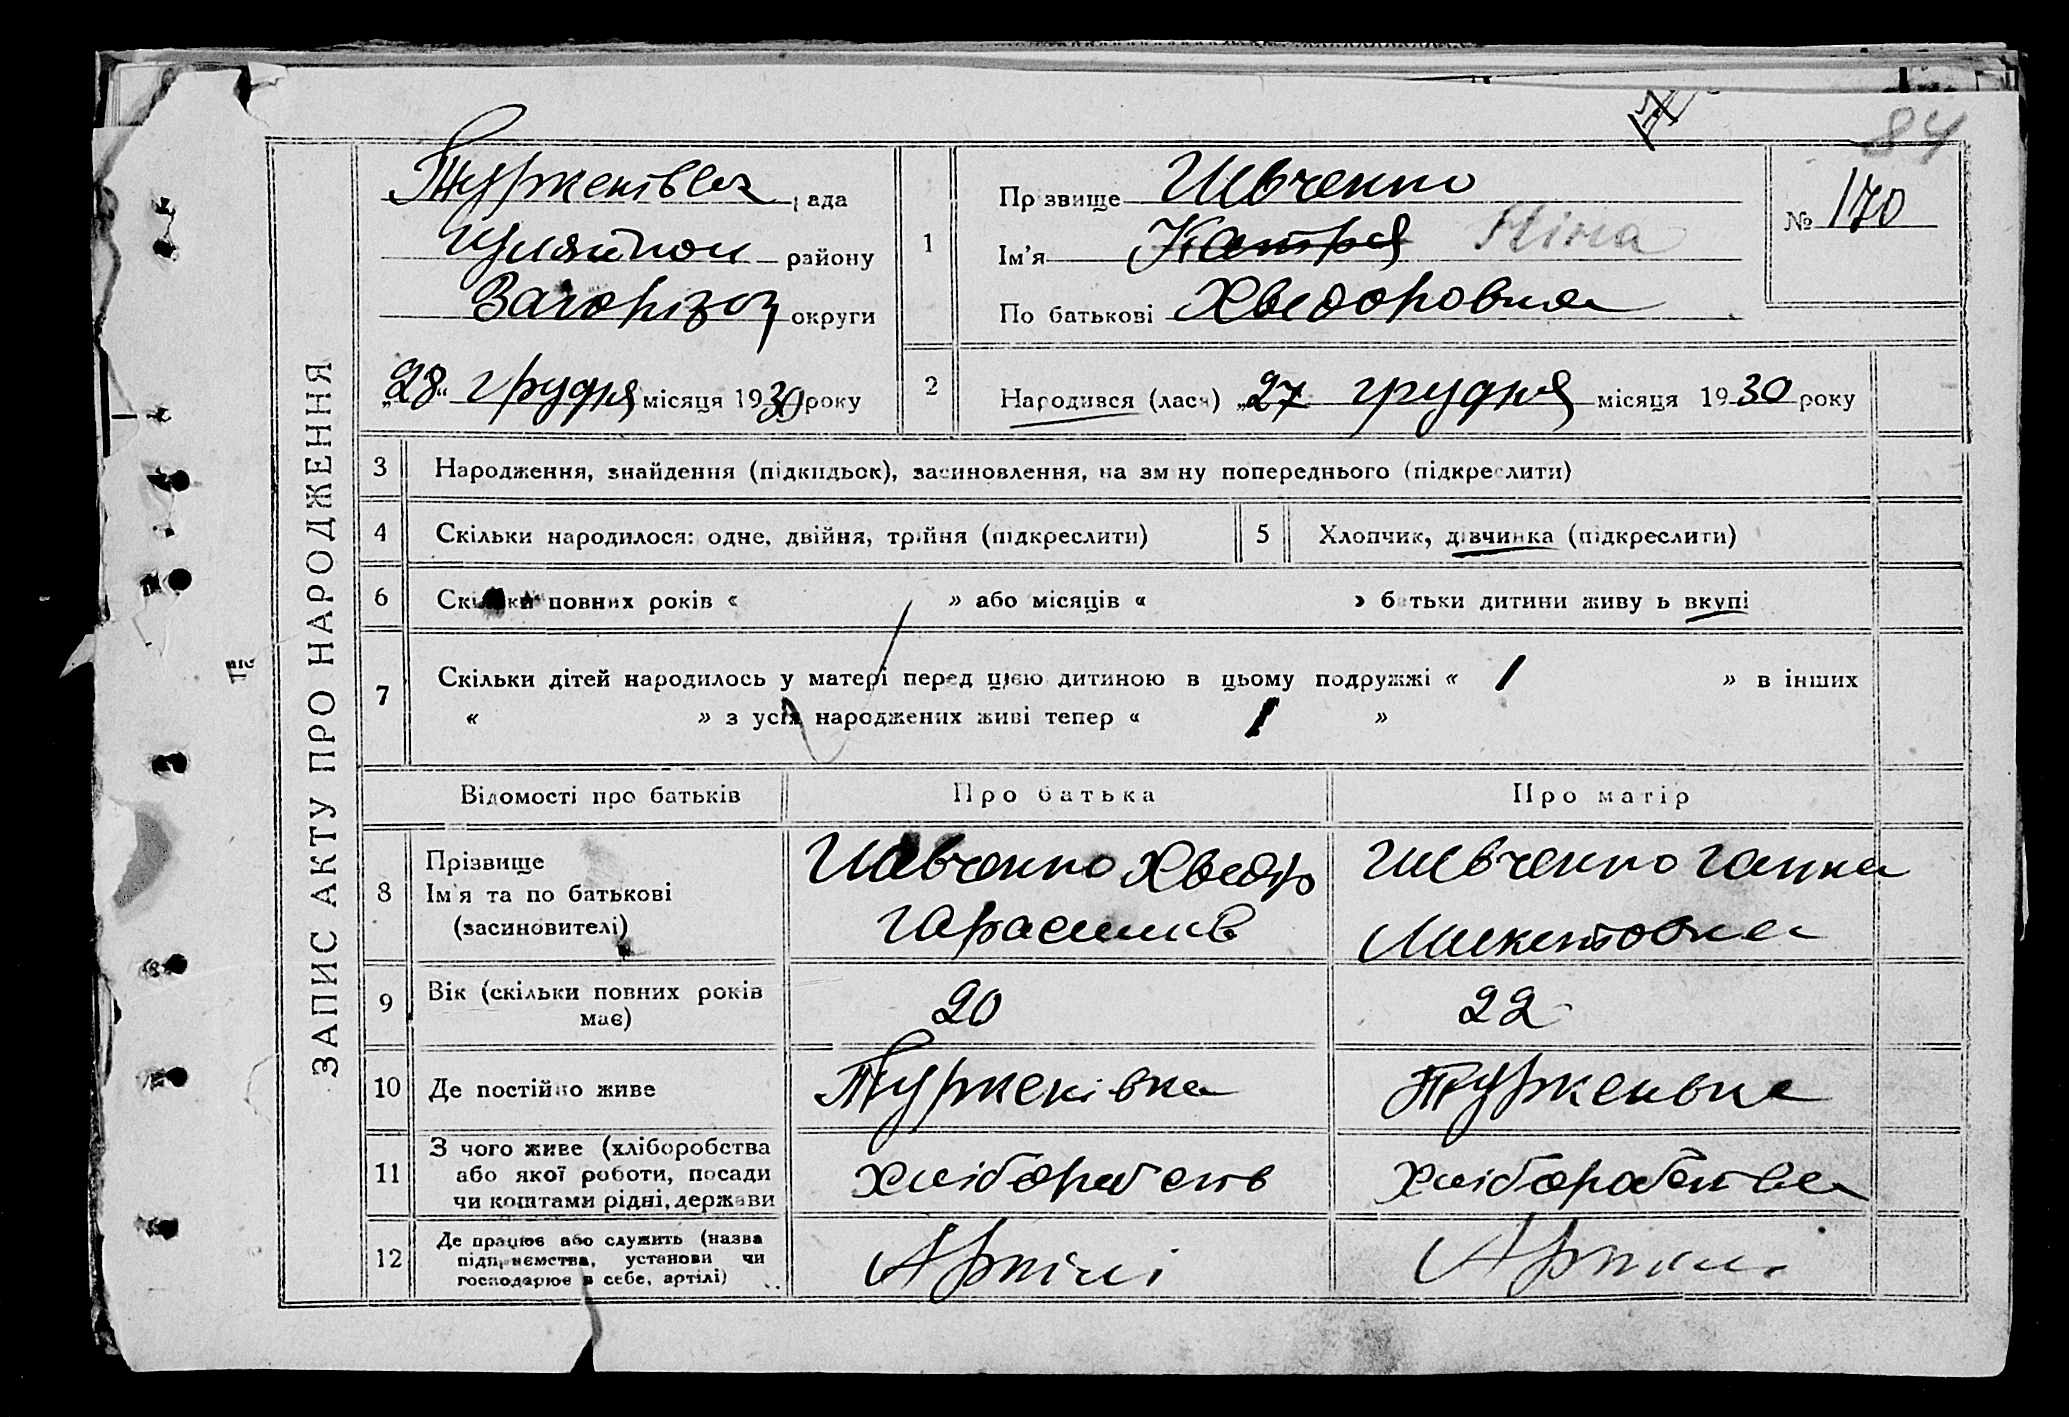 84
ЗАПИС АКТУ ПРО НАРОДЖЕННЯ
рада
району
округи
„28“ грудня місяця 1930 року
1
Прізвище Шевченко
Ім'я Катря Ніна
По батькові Хведоровна
№ 170
2
Народився (лася) „27 грудня місяця 1930 року
3 Народження, знайдення (підкидьок), засиновлення, на зміну попереднього (підкреслити)
4 Скільки народилося: одне, двійня, трійня (підкреслити) 5 Хлопчик, дівчинка (підкреслити)
6 Скільки повних років « » або місяців « » батьки дитини живуть вкупі
7 Скільки дітей народилось у матері перед цією дитиною в цьому подружжі « 1 » в інших
« » з усіх народжених живі тепер « 1 »
Відомості про батьків Про батька Про матір
8 Прізвище
Ім'я та по батькові
(засиновителі)
Шевченко Хведір
Гарасимів
Шевченко Ганна
9 Вік (скільки повних років
має)
20 22
10 Де постійно живе Туркенівка Туркеновка
11 З чого живе (хліборобства
або якої роботи, посади
чи коштами рідні, держави
хліборобств хліборобства
12 Де працює або служить (назва
підприємства, установи чи
господарює в себе, артілі)
Артілі Артілі